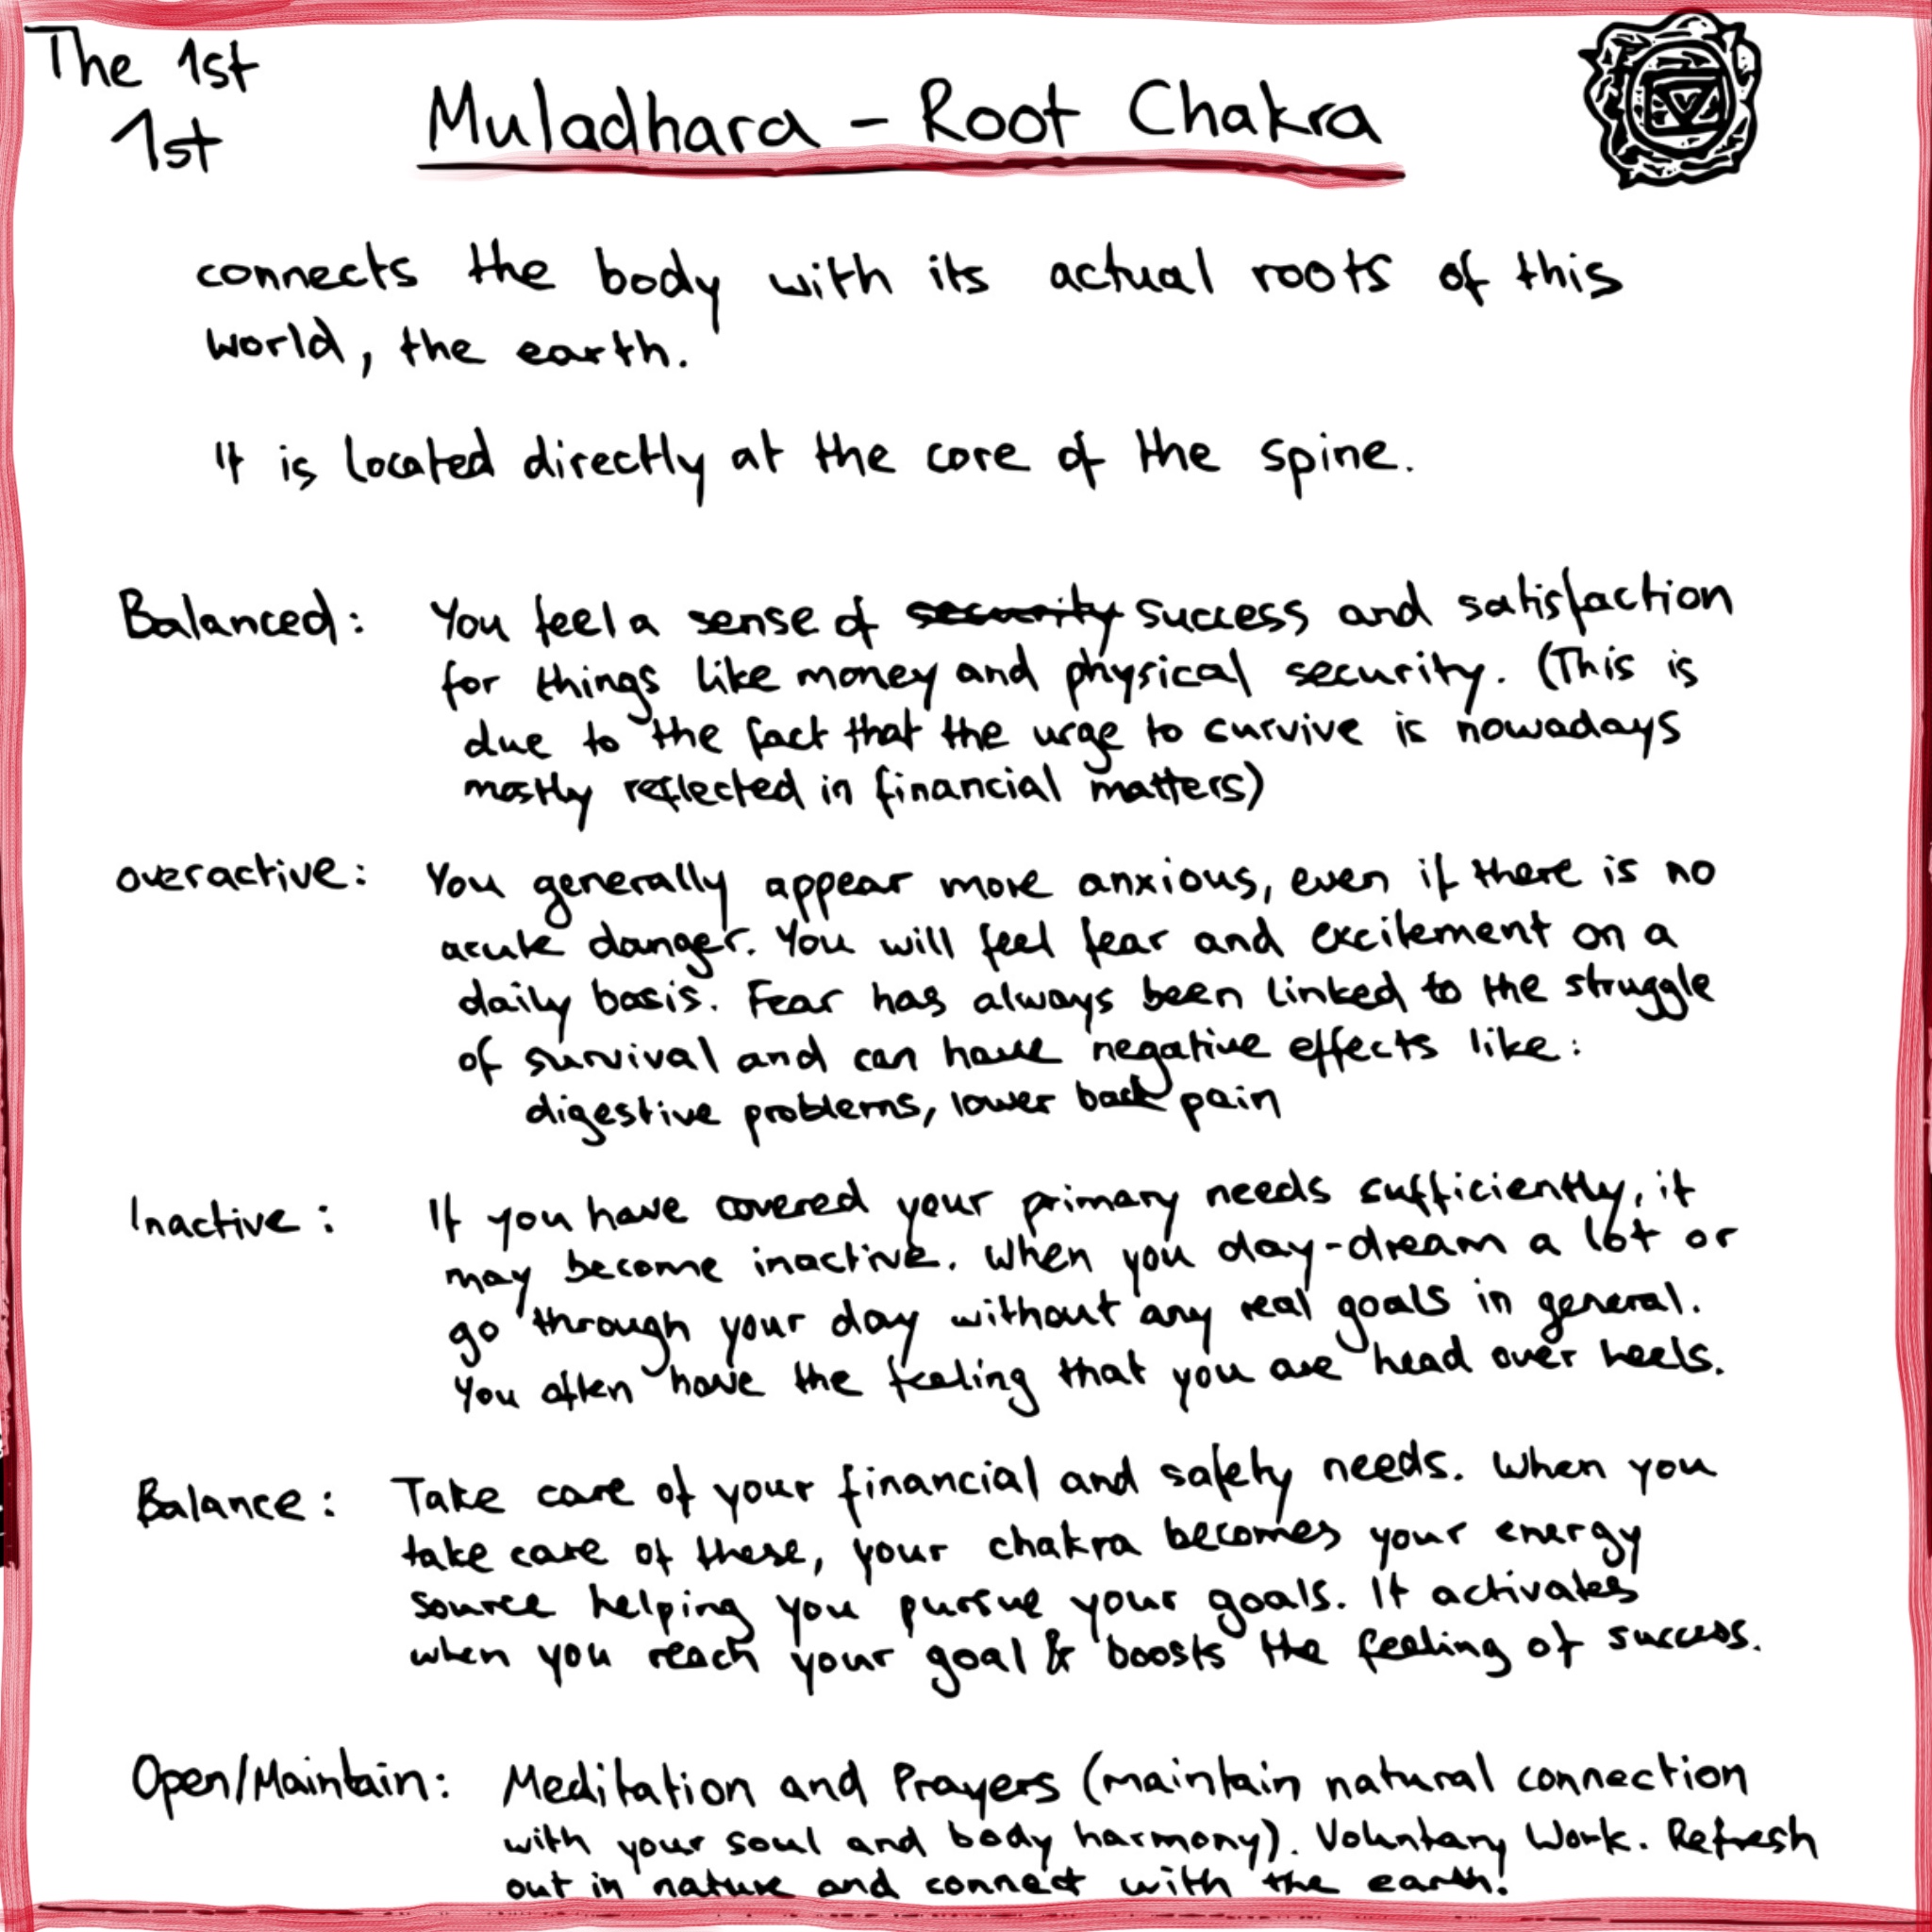 The 1st
1st
Muladhara - Root Chakra
connects the body with its actual roots of this
world, the earth.
It is located directly at the core of the spine.
Balanced: You feel a sense of security success and satisfaction
for things like money and physical security. (This is
due to the fact that the urge to survive is nowadays
mostly reflected in financial matters)
overactive: You generally appear more anxious, even if there is no
acute danger. You will feel fear and excitement on a
daily basis. Fear has always been linked to the struggle
of survival and can have negative effects like:
digestive problems, lower back pain
Inactive: If you have covered your primary needs sufficiently, it
may become inactive. When you day-dream a lot or
go through your day without any real goals in general.
You often have the feeling that you are head over heels.
Balance: Take care of your financial and safety needs. When you
take care of these, your chakra becomes your energy
source helping you pursue your goals. It activates
when you reach your goal & boosts the feeling of success.
Open/Maintain: Meditation and Prayers (maintain natural connection
with your soul and body harmony). Voluntary Work. Refresh
out in nature and connect with the earth!